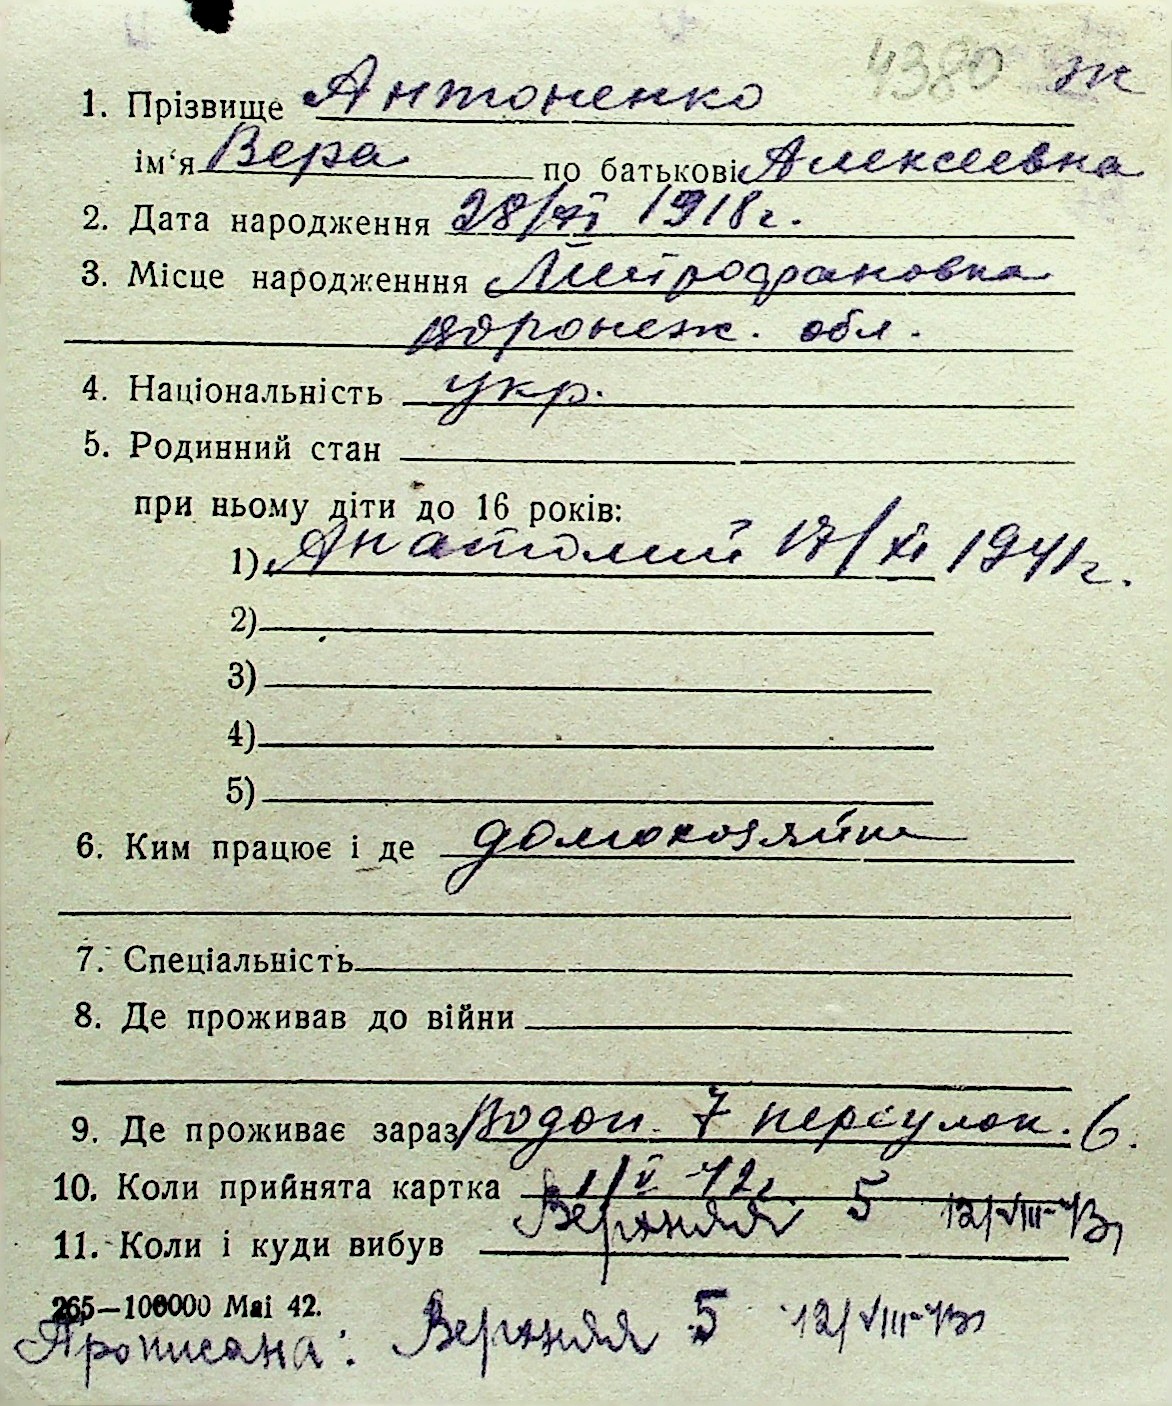 4380 ж
1. Прізвище Антоненко
ім'я Вера по батькові Алексеевна
2. Дата народження 28/XI 1918г.
3. Місце народженння Митрофановка
Воронеж. обл.
4. Національність укр.
5. Родинний стан
при ньому діти до 16 років:
1) Анатолий 17/XI 1941г.
2)
3)
4)
5)
6. Ким працює і де домохозяйка
7. Спеціальність
8. Де проживав до війни
9. Де проживає зараз Водоп. 7 переулок. 6.
10. Коли прийнята картка 1/V 42г.
Верхняя 5 12/VIII-43г
11. Коли і куди вибув
265—100000 Маі 42.
Прописана: Верхняя 5 12/VIII-43г